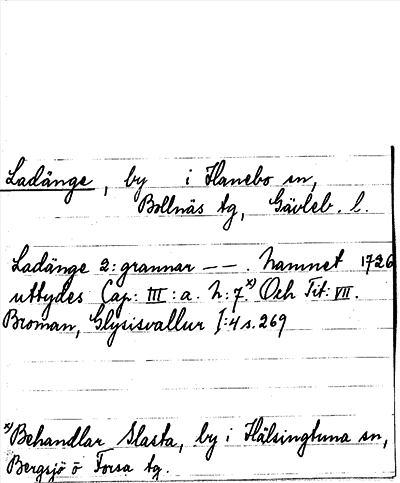 Ladänge, by i Hanebo sn,
Bollnäs tg, Gävleb. l.
Ladänge 2: grannar — —. Namnet 1726
uttydes Cap: III: a. h: 7.x) Och Tit: VII.
Broman, Glysisvallur I:4 s. 269
x) Behandlar Slasta, by i Hälsingtuna sn,
Bergsjö o Forsa tg.